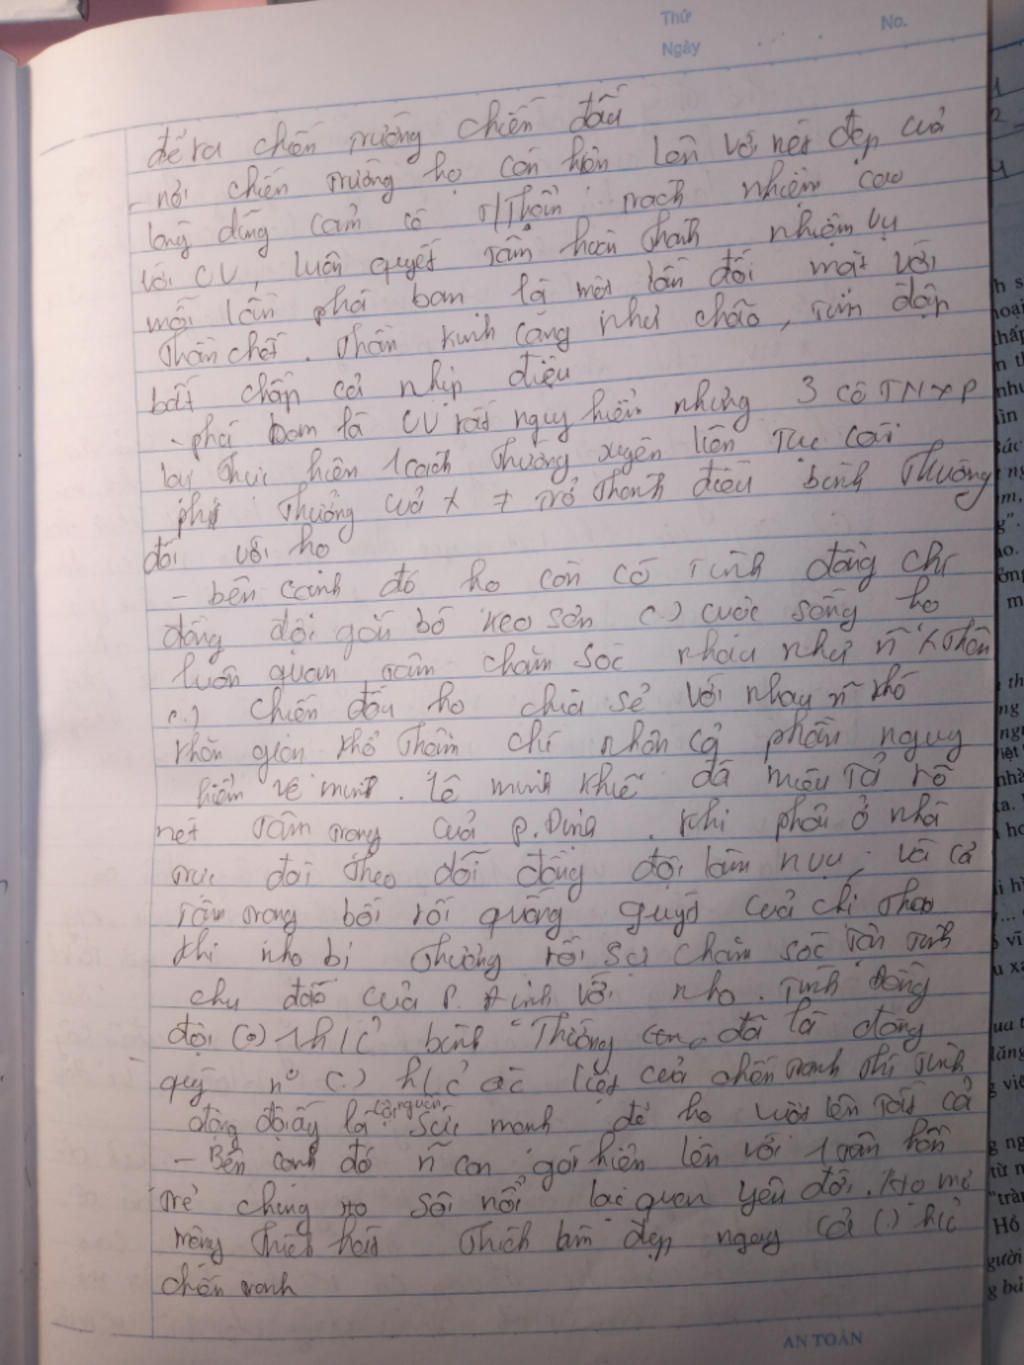 Thứ No.
Ngày
để ra chiến trường chiến đấu
- nơi chiến trường họ còn hiện lên với nét đẹp của
lòng dũng cảm có t/thần trách nhiệm cao
với CV, luôn quyết tâm hoàn thành nhiệm vụ
mỗi lần phá bom là một lần đối mặt với
thần chết. thần kinh căng như chão, tim đập
bất chấp cả nhịp điệu
- phá bom là CV rất nguy hiểm nhưng 3 cô TNXP
lại thực hiện 1 cách thường xuyên liên tục cái
phi thường của trở thành điều bình thường
đối với họ
- bên cạnh đó họ còn có tình đồng chí
đồng đội gắn bó keo sơn (.) cuộc sống họ
luôn quan tâm chăm sóc nhau như
(.) chiến đấu họ chia sẻ với nhau khó
khăn gian khổ thậm chí nhận cả phần nguy
hiểm về mình. Lê minh khuê đã miêu tả rõ
nét tâm trạng của P. Định. khi phải ở nhà
trực đài theo dõi đồng đội làm nvụ, và cả
tâm trạng bối rối quống quýt của chị thao
khi nho bị thương rồi sự chăm sóc tận tình
chu đáo của P. Định với nho. Tình đồng
đội (.) 1 h/c' bình thường đã là đáng
quý (.) h/c' ác liệt của chiến tranh thì tình
đồng đội ấy là cội nguồn sức mạnh để họ vượt lên tất cả
- Bên cạnh đó con gái hiện lên với 1 tâm hồn
trẻ sôi nổi lạc quan yêu đời. Họ mơ
mộng thích hát thích làm đẹp ngay cả (.) h/c'
chiến tranh
AN TOÀN